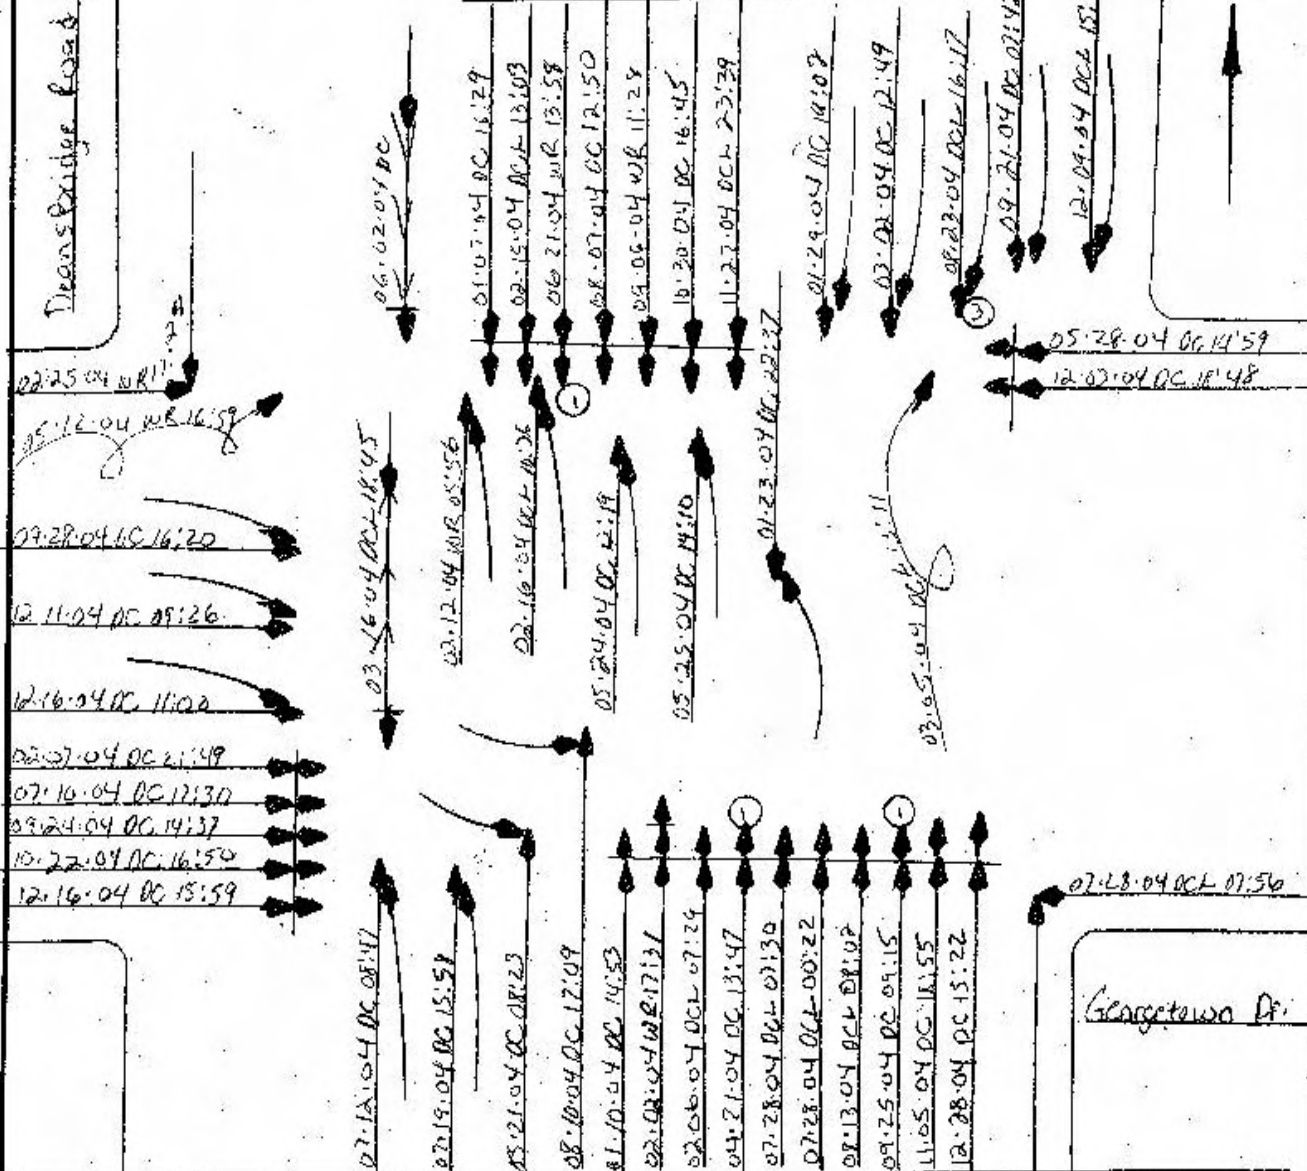 Deans Bridge Road
06.02.04 DC
01.07.04 DC 16:29
02.15.04 DCL 13:03
06.21.04 WR 13:58
08.07.04 DC 12:50
09.06.04 WR 11:28
10.30.04 DC 16:45
11.27.04 DCL 23:39
01.29.04 DC
03.02.04 DC 12:49
DCL 16:17
09.21.04 DC 07:4
12.09.04 DCL 15:
3
05.28.04 DC 14:59
12.03.04 DC 18:48
02.25.04 WR
WR 16:59
16:20
12.11.04 DC 09:26
12.16.04 DC 11:00
DC 21:49
07.10.04 DC 17:30
09.24.04 DC 14:37
10.22.04 DC 16:50
12.16.04 DC 15:59
03.16.04 DCL 18:45
02.12.04 WR 05:56
02.16.04 DCL
1
05.24.04 DC
05.25.04 DC 14:10
01.23.04 DC 22:37
03.05.04 DCL
07.12.04 DC 08:47
07.19.04 DC 15:58
05.21.04 DC 08:23
08.10.04 DC 17:09
01.10.04 DC 14:53
02.02.04 WR 17:31
02.06.04 DCL 07:29
04.21.04 DC 13:47
1
07.28.04 DCL 07:30
07.28.04 DCL 00:22
08.13.04 DCL 08:02
09.25.04 DC 09:15
1
11.05.04 DC 18:55
12.28.04 DC 15:22
07.28.04 DCL 07:56
Georgetown Dr.